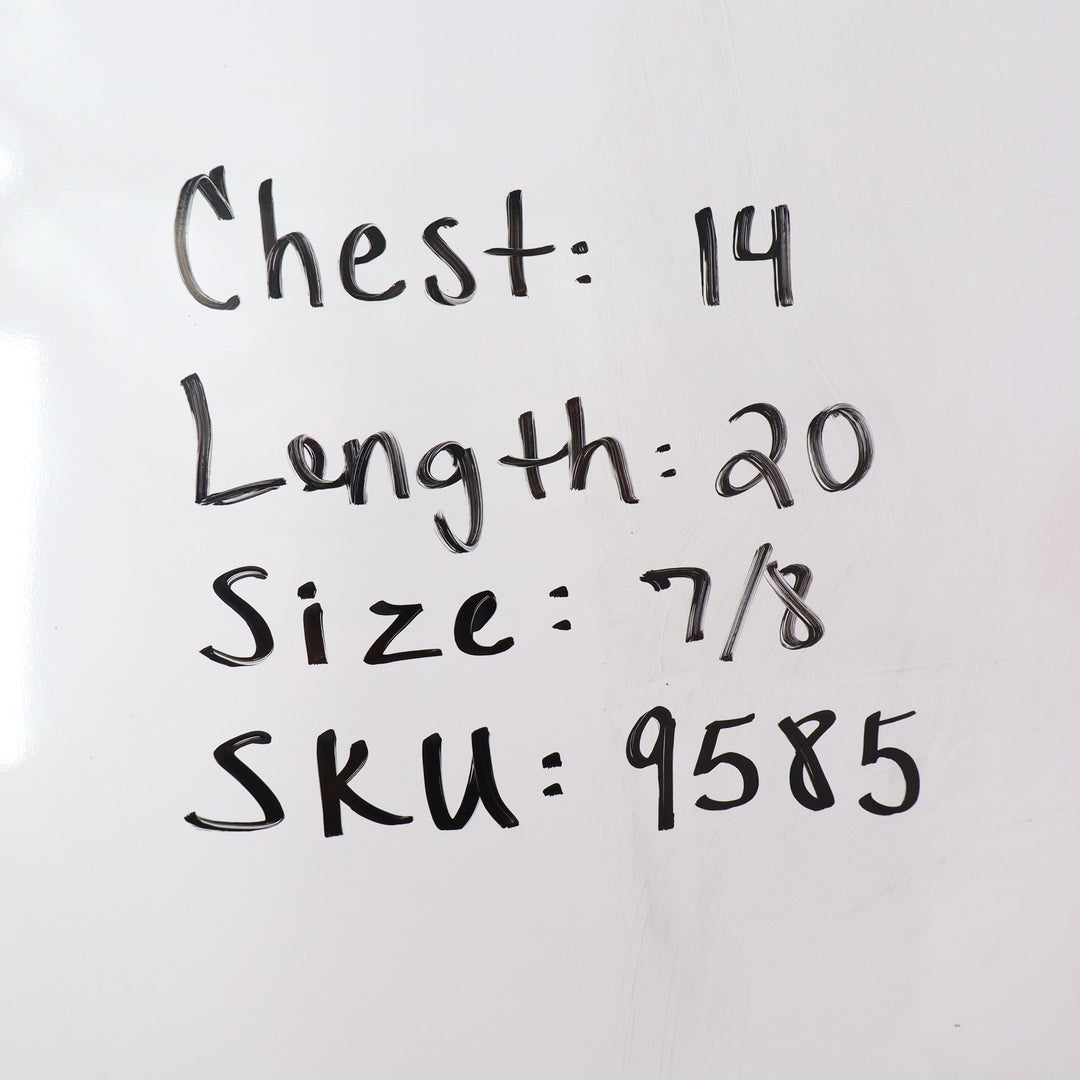 Chest: 14
Length: 20
Size: 7/8
SKU: 9585